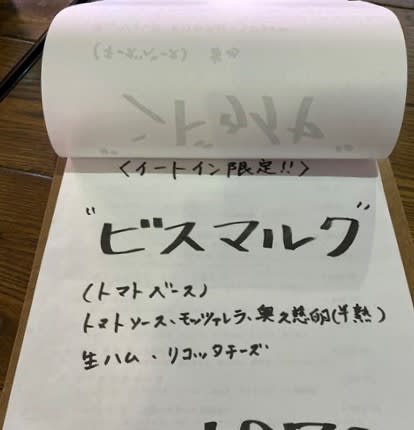 <イートイン限定!!>
"ビスマルク"
(トマトベース)
トマトソース、モッツァレラ、奥久慈卵(半熟)
生ハム、リコッタチーズ